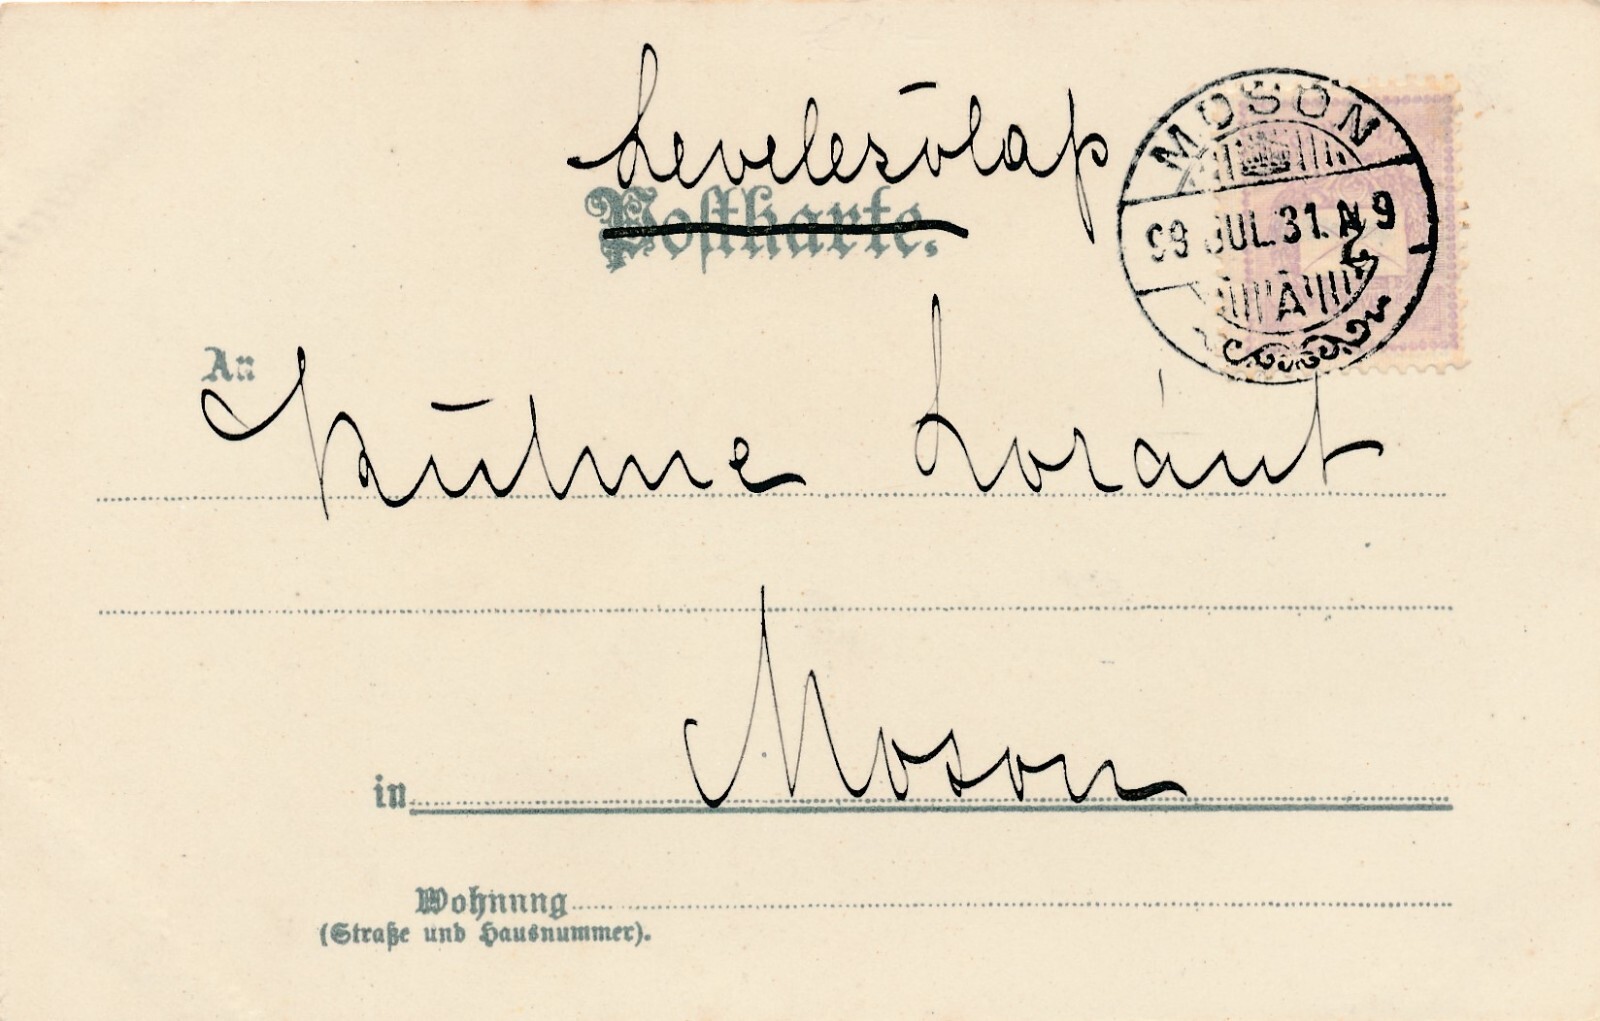 Levelezőlap
Postkarte.
MOSON
99 JUL. 31. N 9
A
An
Kühne Loránt
Moson
in
Wohnung
(Straße und Hausnummer).